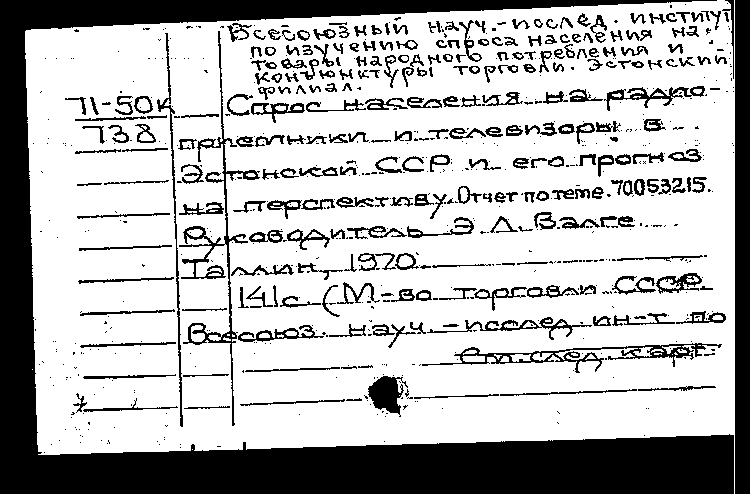 Всесоюзный науч.-исслед. институт
по изучению спроса населения на
товары народного потребления и
конъюнктуры торговли. Эстонский
филиал.
71-50к Спрос населения на радио-
738 приемники и телевизоры в
Эстонской ССР и его прогноз
на перспективу. Отчет по теме. 70053215.
Руководитель Э. Л. Валге.
Таллин, 1970.
141с (М-во торговли СССР.
Всесоюз. науч.-исслед. ин-т по
см. след. карт.